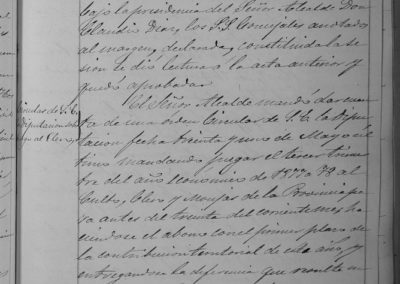 bajo la presidencia del Señor Alcalde Don
Claudio Diaz, los S.S. Concejales anotados
al margen, declarada constituida la se
sion se dió lectura a la acta anterior y
quedó aprobada.
El Señor Alcalde mandó dar cuen
ta de una orden Circular de S. E. la Dipu
tacion, fecha treinta y uno de Mayo ul
timo mandando pagar el tercer trimes
tre del año economico de 1877 a 78 al
Culto, Clero y Monjas de la Provincia pa
ra antes del treinta del corriente mes, ha
ciendose el abono con el primer plazo de
la contribucion territorial de este año, y
entregandose la diferencia que resulte en
Circular de S. E.
Diputacion sobre
pago al Clero